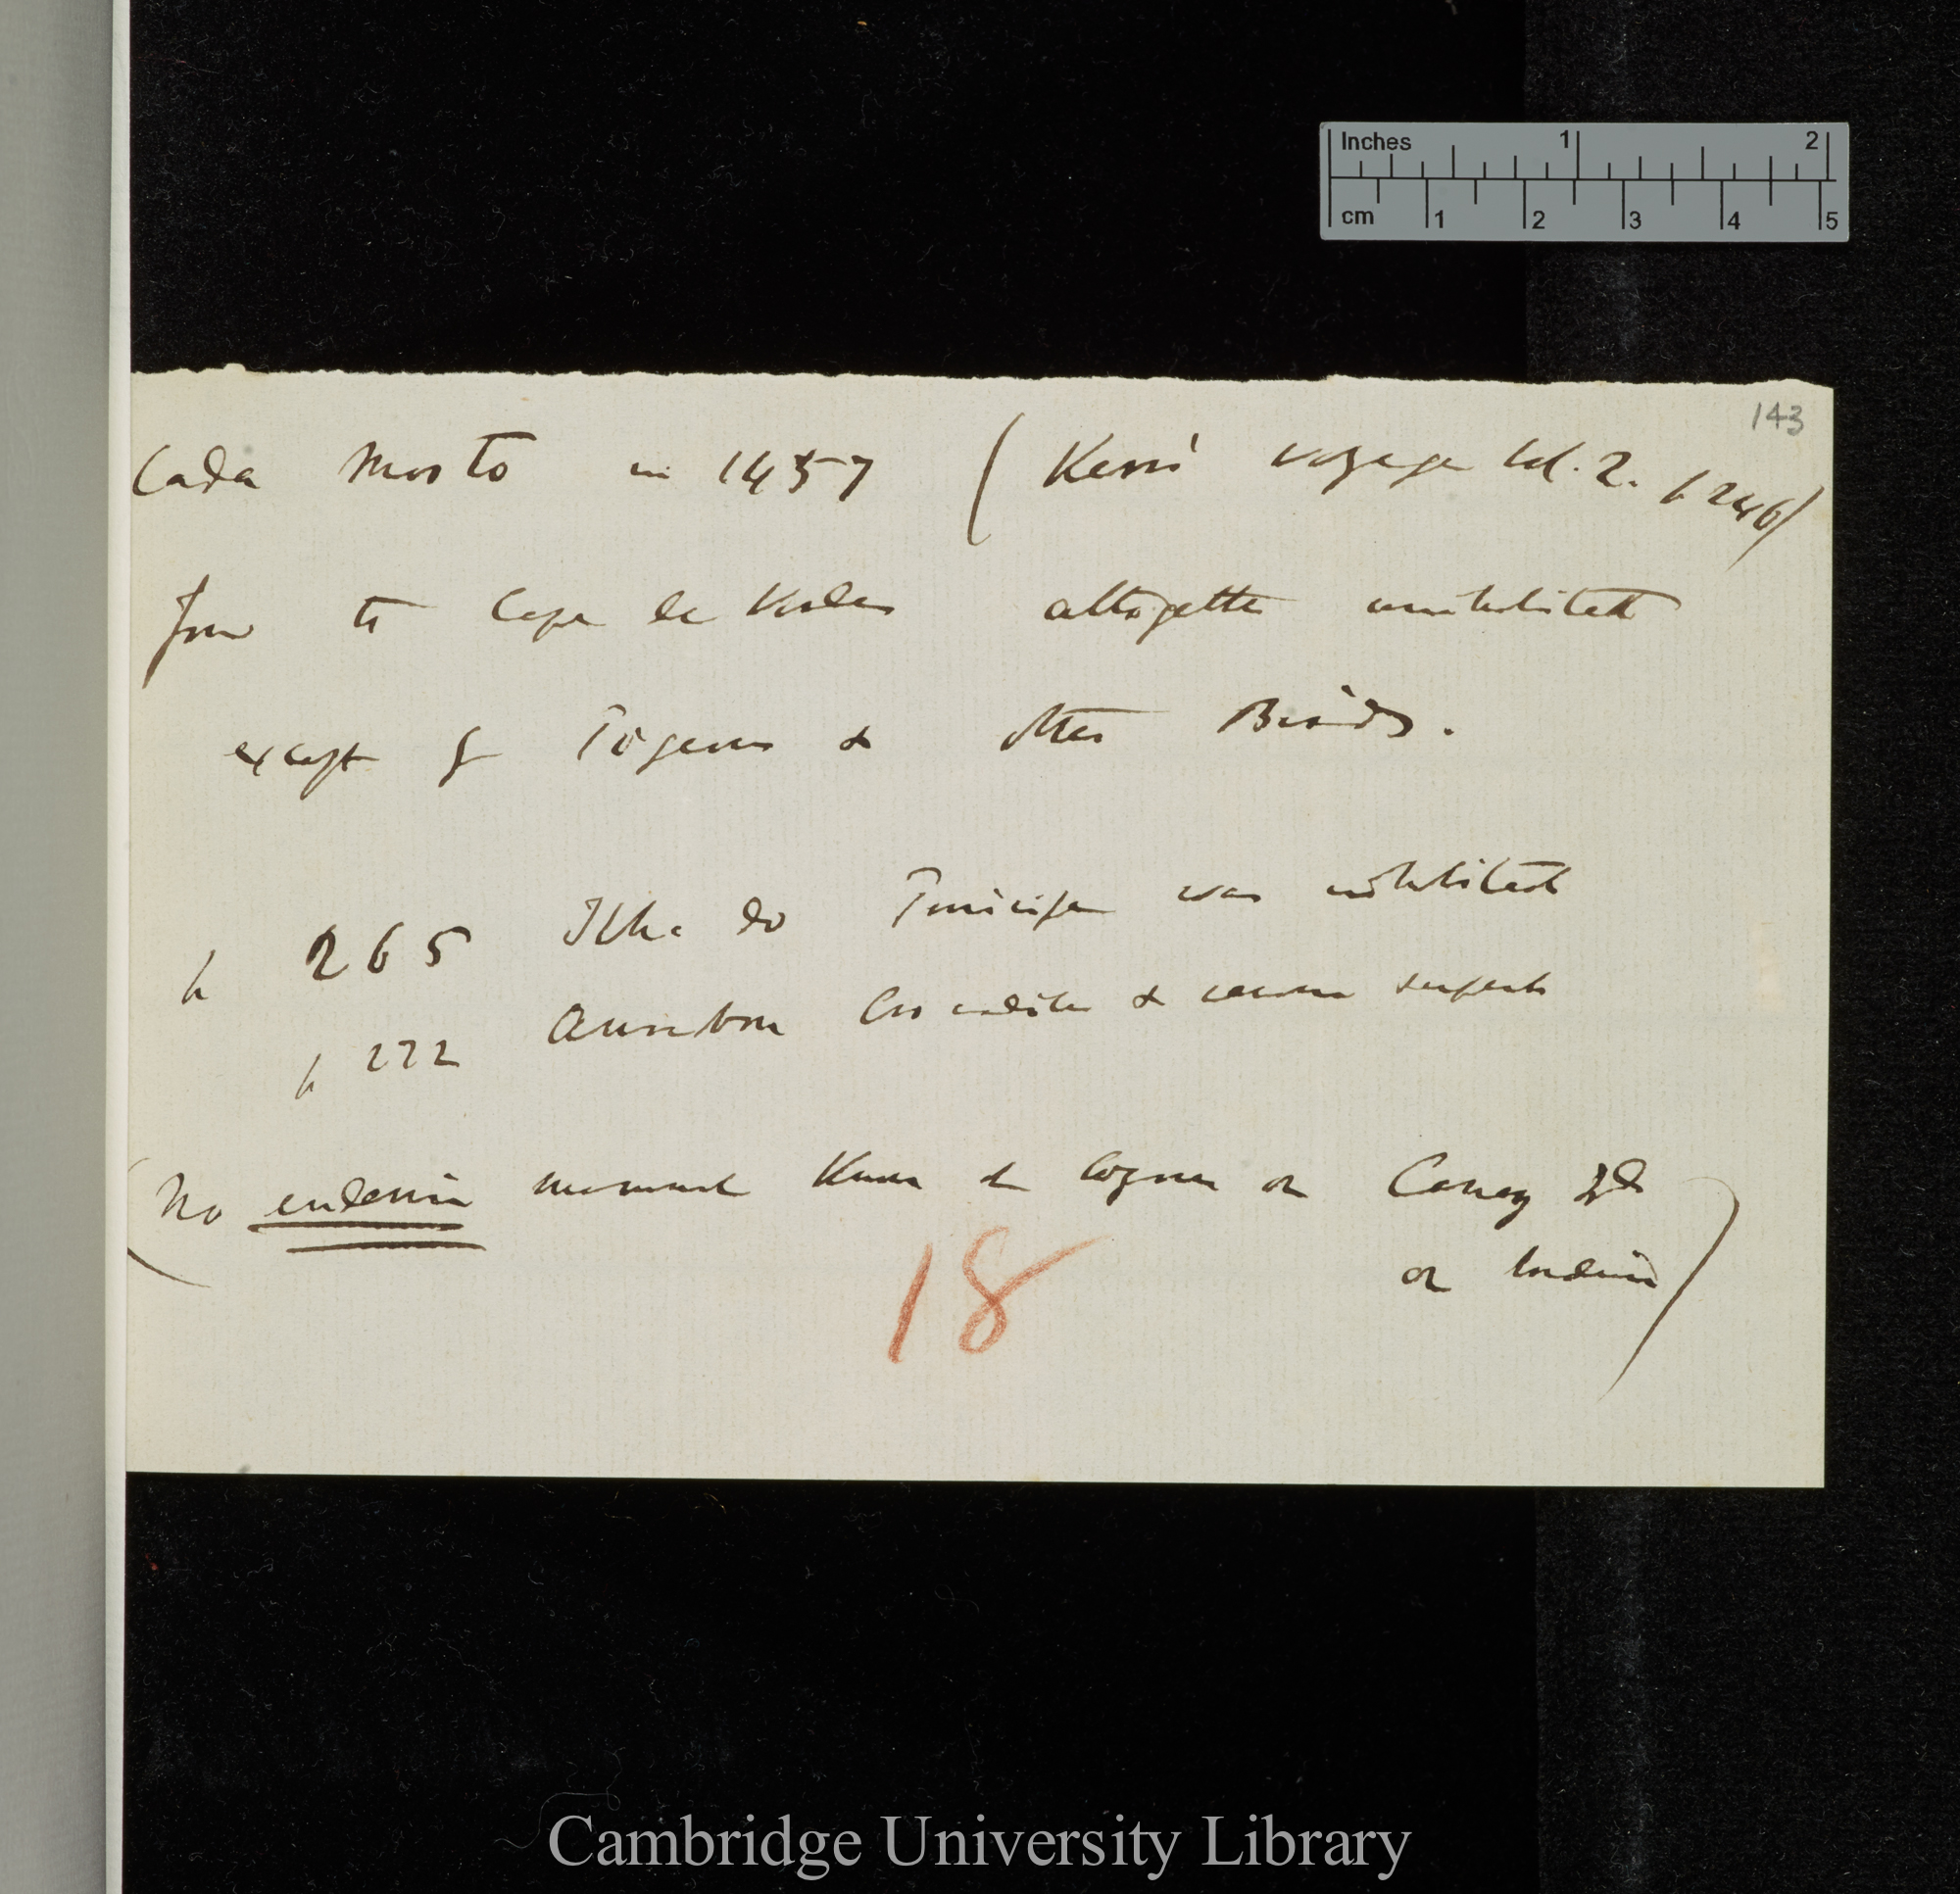 Inches 1 2
cm 1 2 3 4 5
143
Cada Mosto in 1457 (Kerr's voyage Vol. 2. p 246)
found the Cape de Verdes altogether uninhabited
except by Pigeons & other Birds.
p 265 Ilha do Principe was uninhabited
p 272 Annabon Crocodiles & venomous serpents
(No endemic mammal known at Azores or Canary Isd
or Madeira)
18
Cambridge University Library